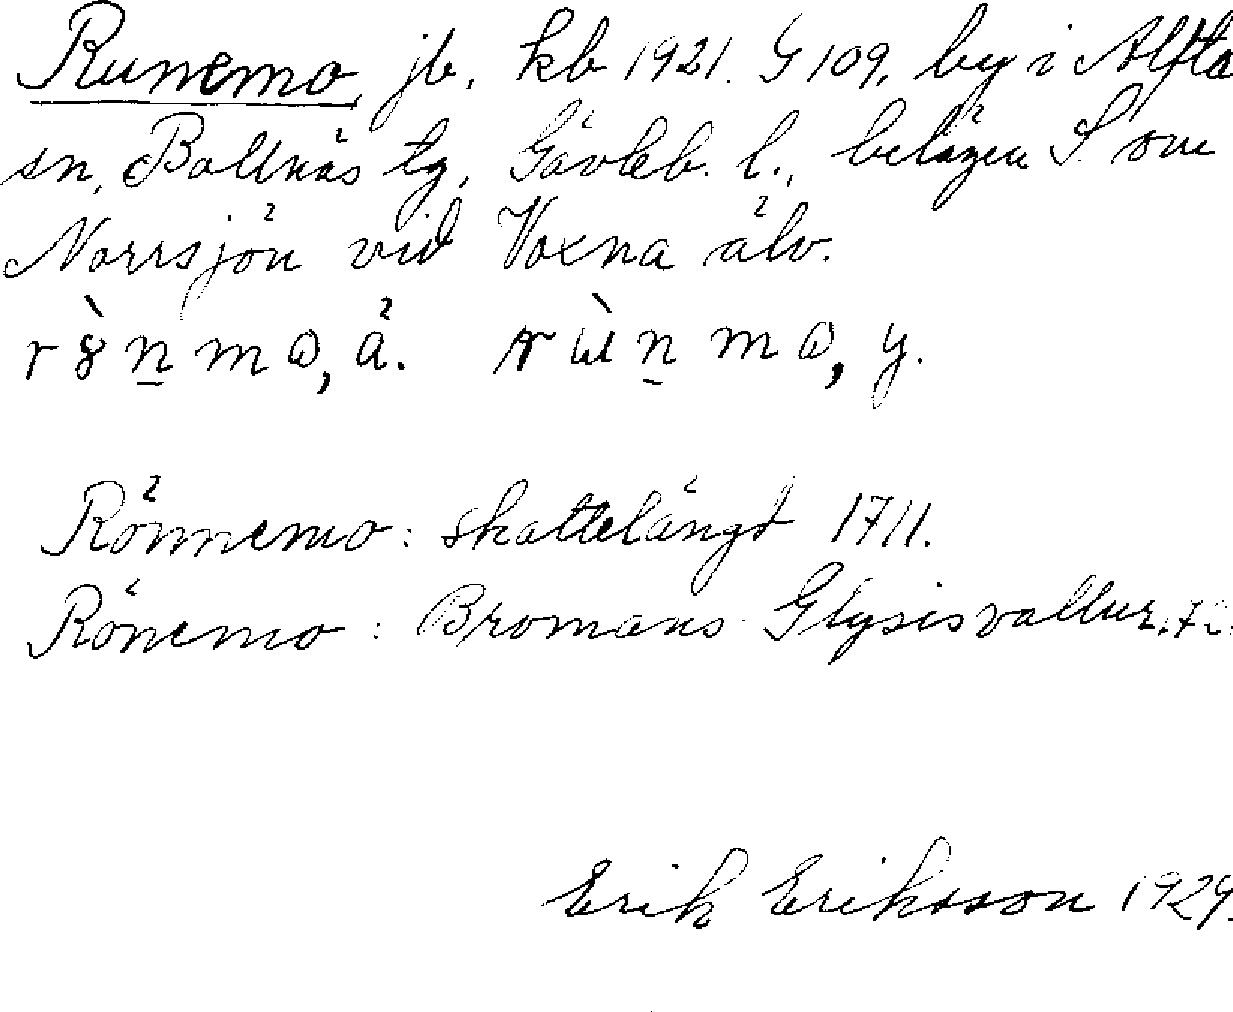 Runemo, jb, kb 1921. G 109, by i Alfta
sn, Bollnäs tg, Gävleb. l., belägen S om
Norrsjön vid Voxna älv.
r ȣ̀ n̲ m ɷ, ä. r ɯ̀ n̲ m ɷ, y.
Rönnemo: skattelängd 1711.
Rönemo: Bromans Glysisvallur,
Erik Eriksson 1929.